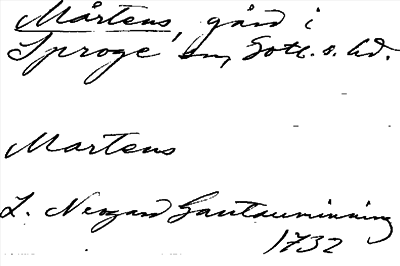 Mårtens, gård i
Sproge sn, Gotl. s. hd.
Martens
L. Nergard Gautauminning
1732